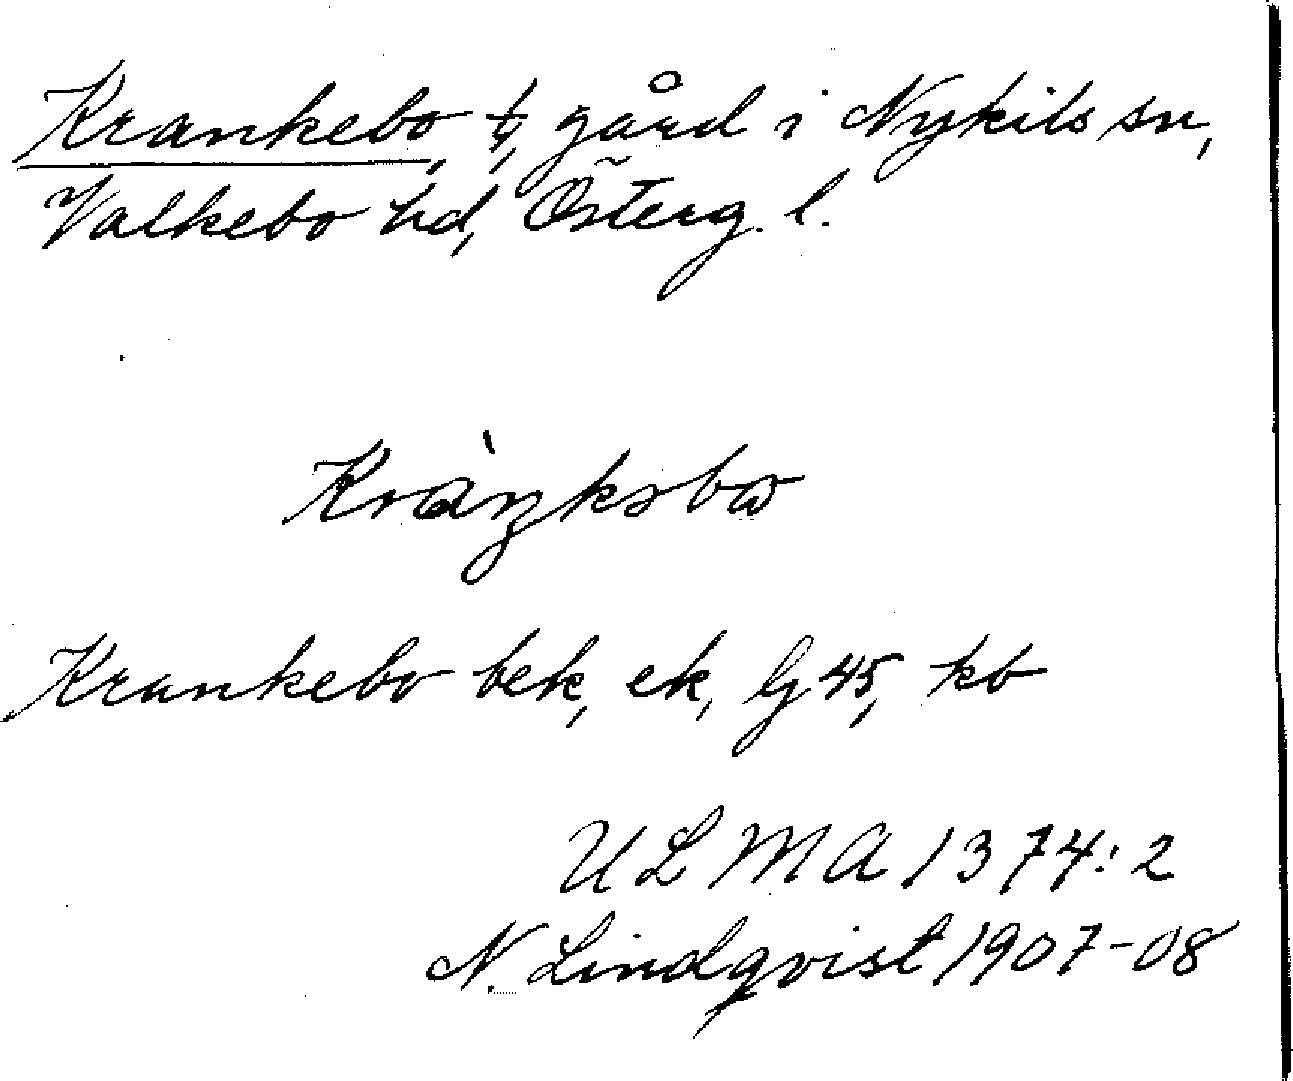 Krankebo, ¼, gård i Nykils sn,
Valkebo hd, Österg. l.
Kràŋkəbω
Krankebo bek, ek, G 45, kb
ULMA 1374:2
N. Lindqvist 1907-08